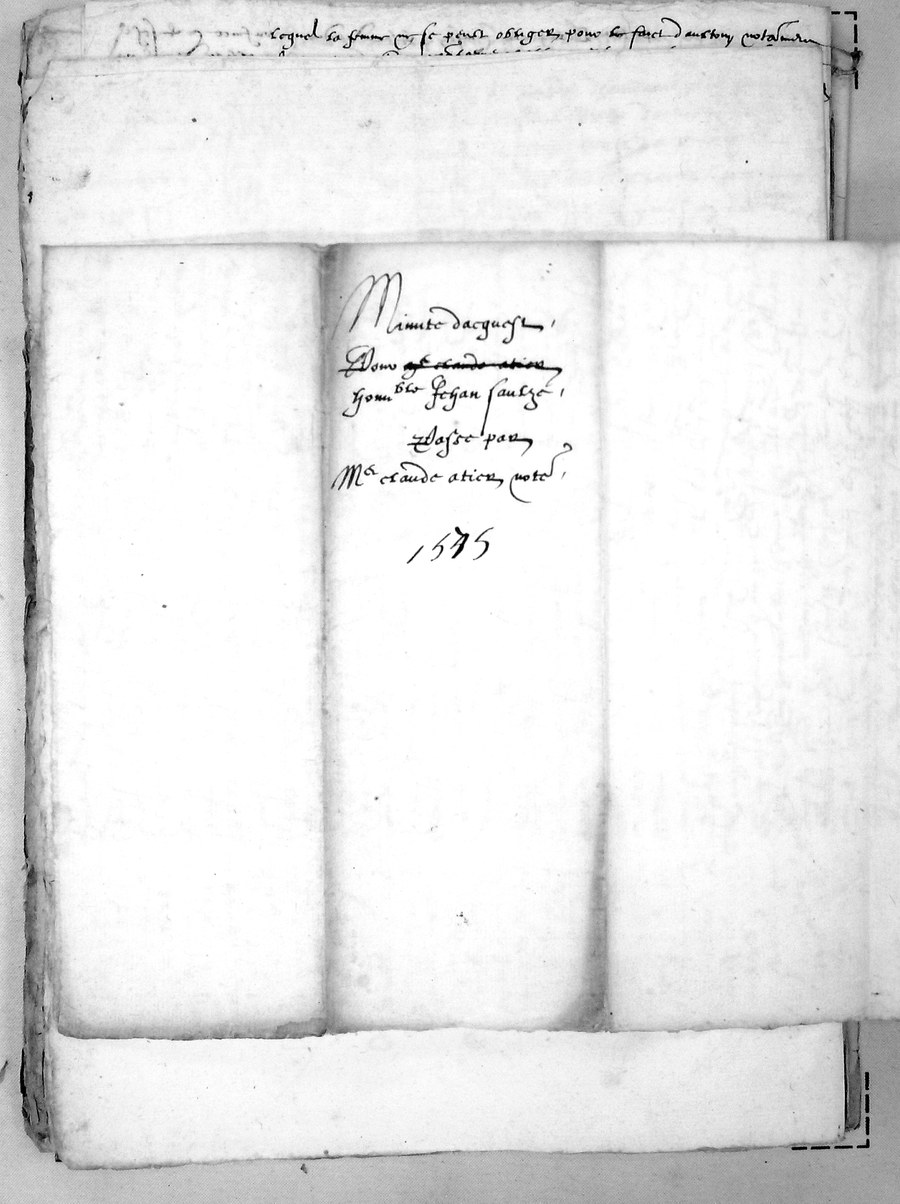 lequel la femme ne se peult obliger pour le faict daultruy notamment
Minute dacquest
Pour Me claude atier
honnble Jehan saulze
Passe par
Me claude atier notere
1545